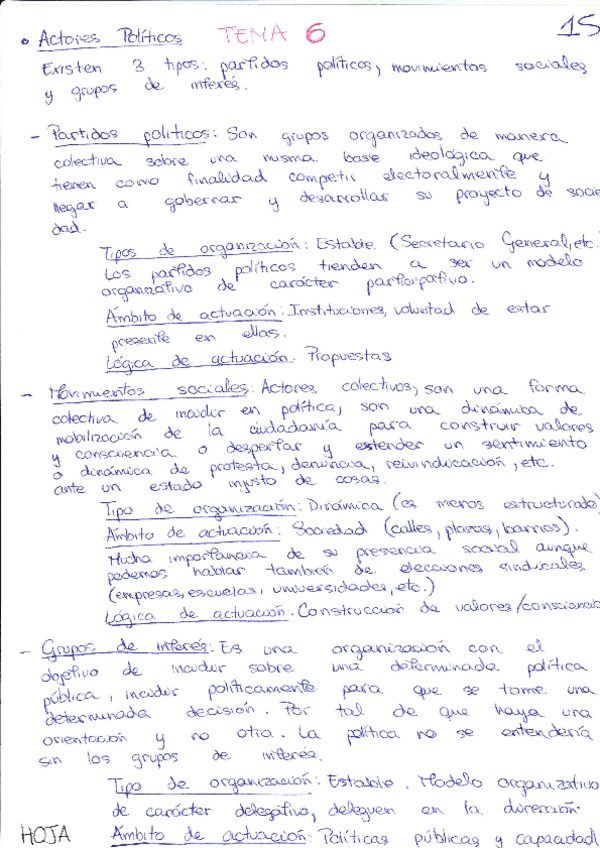 • Actores Políticos TEMA 6 15
Existen 3 tipos: partidos políticos, movimientos sociales
y grupos de interés.
- Partidos políticos: Son grupos organizados de manera
colectiva sobre una misma base ideológica que
tienen como finalidad competir electoralmente y
llegar a gobernar y desarrollar su proyecto de socie
dad.
Tipos de organización: Estable. (Secretario General, etc.
Los partidos políticos tienden a ser un modelo
organizativo de carácter participativo.
Ámbito de actuación: Instituciones, voluntad de estar
presente en ellas.
Lógica de actuación. Propuestas
- Movimientos sociales: Actores colectivos, son una forma
colectiva de incidir en política, son una dinámica de
mobilización de la ciudadanía para construir valores
y consciencia o despertar y extender un sentimiento
o dinámica de protesta, denuncia, reivindicación, etc.
ante un estado injusto de cosas.
Tipo de organización: Dinámica (es menos estructurado)
Ámbito de actuación: Sociedad (calles, plazas, barrios).
Mucha importancia de su presencia social aunque
podemos hablar también de elecciones sindicales
(empresas, escuelas, universidades, etc.)
Lógica de actuación. Construcción de valores/conscienci
- Grupos de interés: Es una organización con el
objetivo de incidir sobre una determinada política
pública, incidir políticamente para que se tome una
determinada decisión. Por tal de que haya una
orientación y no otra. La política no se entendería
sin los grupos de interés.
Tipo de organización: Estable. Modelo organizativo
de carácter delegativo, deleguen en la dirección.
HOJA Ámbito de actuación: Políticas públicas y capacidad